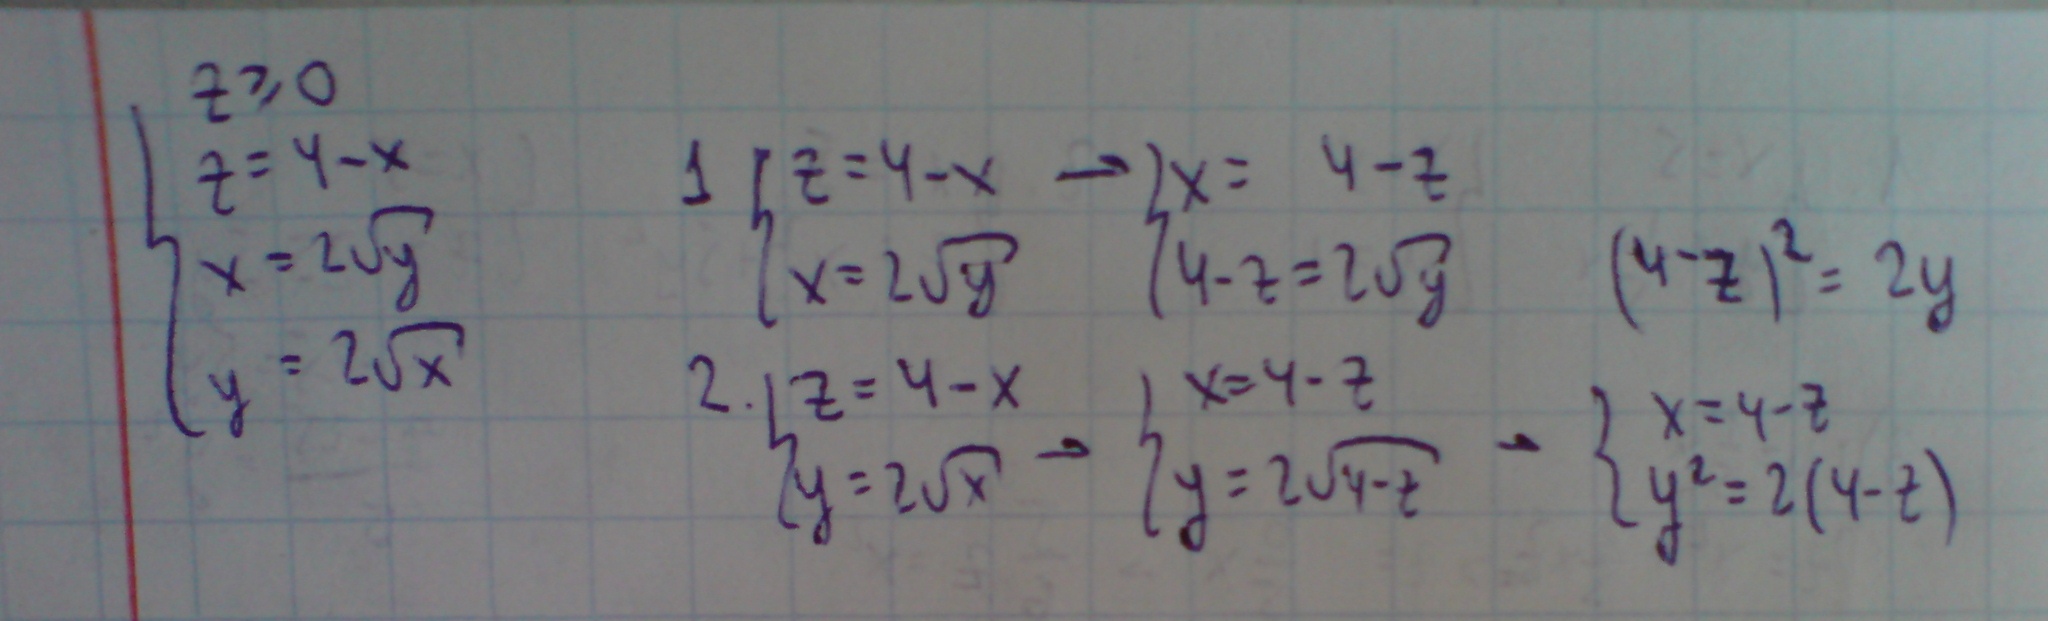 z ≥ 0
z = 4 - x
x = 2√y
y = 2√x
1 { z = 4 - x → { x = 4 - z
{ x = 2√y { 4 - z = 2√y (4 - z)² = 2y
2. { z = 4 - x → { x = 4 - z → { x = 4 - z
{ y = 2√x { y = 2√(4-z) { y² = 2(4 - z)